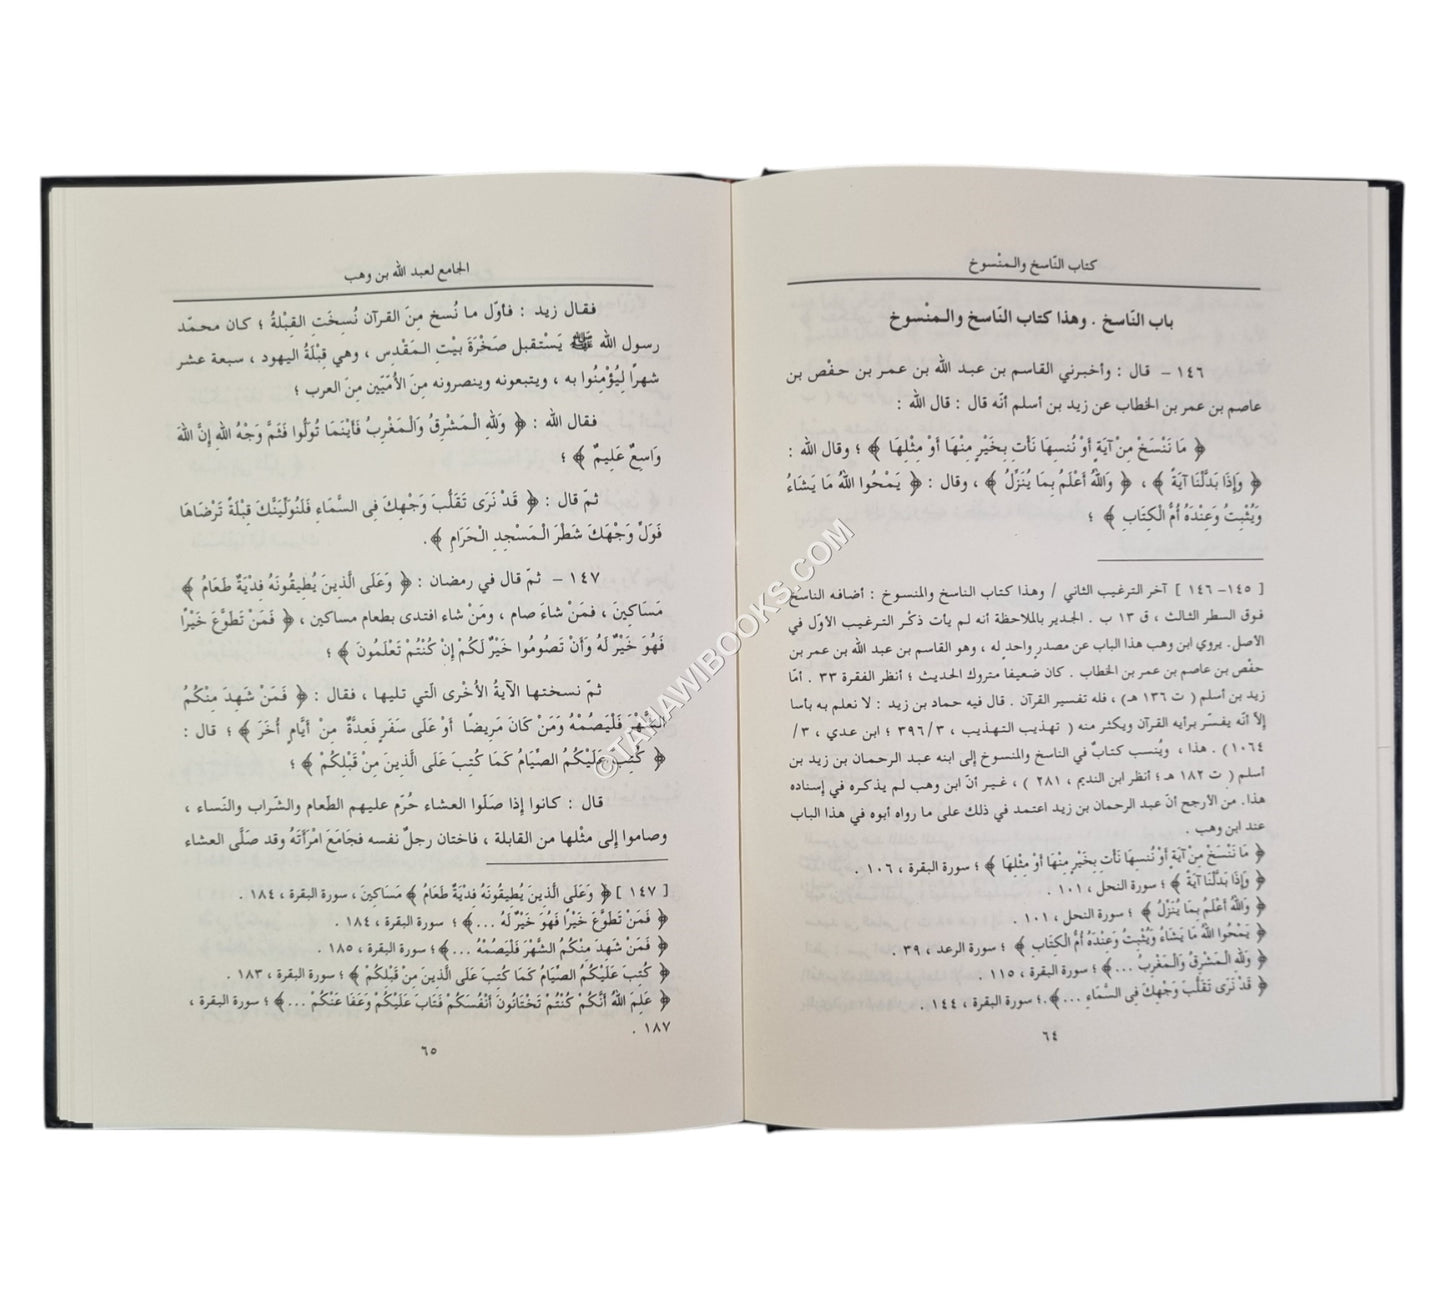 كتاب النّاسخ والـمنْسوخ
باب النَاسخ . وهذا كتاب النَاسخ والـمنْسوخ
١٤٦ – قال : وأخبرني القاسم بن عبد الله بن عمـر بن حـفْص بن
عاصم بن عمر بن الخطاب عن زيد بن أسلم أنّه قال : قال الله :
﴿ مَا نَنْسَخْ مِنْ آيَةٍ أَوْ نُنسِهَا نَأْتِ بِخَيْرٍ مِنْهَا أَوْ مِثْلِهَا ﴾ ؛ وقال الله :
﴿ وَإِذَا بَدَّلْنَا آيَةً ﴾ ، ﴿ وَاللهُ أَعْلَمُ بِمَا يُنَزِّلُ ﴾ ، وقال : ﴿ يَمْحُوا اللهُ مَا يَشَاءُ
وَيُثْبِتُ وَعِنْدَهُ أُمُّ الْكِتَابِ ﴾ ؛
[ ١٤٥– ١٤٦ ] آخر الترغيب الثاني / وهذا كتاب الناسخ والمنسوخ : أضافه الناسخ
فوق السطر الثالث ، ق ١٣ ب . الجدير بالملاحظة أنه لم يأت ذكْر التـرغيب الأوّل في
الأصل. يروي ابن وهب هذا الباب عن مصدرٍ واحدٍ له ، وهو القاسم بن عبد الله بن عمر بن
حفْص بن عاصم بن عمر بن الخطاب . كان ضعيفا متروك الحديث ؛ أنظر الفقرة ٣٣ . أمّا
زيد بن أسلم ( ت ١٣٦ هـ) ، فله تفسير القرآن . قال فيه حماد بن زيد : لا نعلم به بأسا
إلاّ أنّه يفسّر برأيه القرآن ويكثر منه ( تهذيب التـهذيب ، ٣/ ٣٩٦ ؛ ابن عدي ، ٣/
١٠٦٤ ) . هذا ، ويُنسب كتابٌ في الناسخ والمنسوخ إلى ابنه عبد الرحمان بن زيد بن
أسلم ( ت ١٨٢ هـ ؛ أنظر ابن النديم ، ٢٨١ ) ، غـير أنّ ابن وهب لم يذكره في إسناده
هذا. من الأرجح أنّ عبد الرحمان بن زيد اعتمد في ذلك على ما رواه أبوه في هذا الباب
عند ابن وهب .
﴿ مَا نَنْسَخْ مِنْ آيَةٍ أَوْ نُنسِهَا نَأْتِ بِخَيْرٍ مِنْهَا أَوْ مِثْلِهَا ﴾ ؛ سورة البقرة ، ١٠٦ .
﴿ وَإِذَا بَدَّلْنَا آيَةً ﴾ ؛ سورة النحل ، ١٠١ .
﴿ وَاللهُ أَعْلَمُ بِمَا يُنَزِّلُ ﴾ ؛ سورة النحل ، ١٠١ .
﴿ يَمْحُوا اللهُ مَا يَشَاءُ وَيُثْبِتُ وَعِنْدَهُ أُمُّ الْكِتَابِ ﴾ ؛ سورة الرعد ، ٣٩ .
﴿ وَلِلهِ الْمَشْرِقُ وَالْمَغْرِبُ ...﴾ ؛ سورة البقرة ، ١١٥ .
﴿ قَدْ نَرَى تَقَلُّبَ وَجْهِكَ فِى السَّمَاءِ ...﴾.؛ سورة البقرة ، ١٤٤ .
٦٤
الجامع لعبد الله بن وهب
فقال زيد : فأوّل ما نُسخ مِنَ القرآن نُسِخَتِ القِبْلةُ ؛ كان محمّد
رسول الله ﷺ يَسْتقبل صَخْرَةَ بيْت الـمَقْدس ، وهي قِبْلَةُ اليهود ، سبعة عشر
شهرًا لِيُؤْمِنُوا به ، ويتبعونه وينصرونه مِنَ الأُمّيّين مِنَ العرب ؛
فقال الله : ﴿ وَلِلهِ الْـمَشْرِقُ وَالْـمَغْرِبُ فَأَيْنَمَا تُوَلُّوا فَثَمَّ وَجْهُ اللهِ إِنَّ اللهَ
وَاسِعٌ عَلِيمٌ ﴾ ؛
ثمّ قال : ﴿ قَدْ نَرَى تَقَلُّبَ وَجْهِكَ فِى السَّمَاءِ فَلَنُوَلِّيَنَّكَ قِبْلَةً تَرْضَاهَا
فَوَلِّ وَجْهَكَ شَطْرَ الْمَسْجِدِ الْـحَرَامِ ﴾ .
١٤٧ – ثمّ قال في رمضان : ﴿ وَعَلَى الَّذِينَ يُطِيقُونَهُ فِدْيَةٌ طَعَامُ ﴾
مَسَاكِينَ ، فمَنْ شاءَ صام ، ومَنْ شاء افتدى بطعام مساكين ، ﴿ فَمَنْ تَطَوَّعَ خَيْرًا
فَهُوَ خَيْرٌ لَهُ وَأَنْ تَصُومُوا خَيْرٌ لَكُمْ إِنْ كُنْتُمْ تَعْلَمُونَ ﴾ ؛
ثمّ نسختها الآيةُ الأُخْرى الّتي تليها ، فقال : ﴿ فَمَنْ شَهِدَ مِنْكُمُ
الشَّهْرَ فَلْيَصُمْهُ وَمَنْ كَانَ مَرِيضًا أَوْ عَلَى سَفَرٍ فَعِدَّةٌ مِنْ أَيَّامٍ أُخَرَ ﴾ ؛ قال :
﴿ كُتِبَ عَلَيْكُمُ الصِّيَامُ كَمَا كُتِبَ عَلَى الَّذِينَ مِنْ قَبْلِكُمْ ﴾ ؛
قال : كانوا إذا صَلّوا العشاء حُرّم عليهم الطّعام والشّراب والنّساء ،
وصاموا إلى مثْلها من القابلة ، فاختان رجلٌ نفسه فجَامَعَ امْرَأَتَهُ وقد صلّى العشاء
[ ١٤٧ ] ﴿ وَعَلَى الَّذِينَ يُطِيقُونَهُ فِدْيَةٌ طَعَامُ ﴾ مَسَاكِينَ ، سورة البقرة ، ١٨٤ .
﴿ فَمَنْ تَطَوَّعَ خَيْرًا فَهُوَ خَيْرٌ لَهُ ...﴾ ؛ سورة البقرة ، ١٨٤ .
﴿ فَمَنْ شَهِدَ مِنْكُمُ الشَّهْرَ فَلْيَصُمْهُ ...﴾ ؛ سورة البقرة ، ١٨٥ .
﴿ كُتِبَ عَلَيْكُمُ الصِّيَامُ كَمَا كُتِبَ عَلَى الَّذِينَ مِنْ قَبْلِكُمْ ﴾ ؛ سورة البقرة ، ١٨٣ .
﴿ عَلِمَ اللهُ أَنَّكُمْ كُنْتُمْ تَخْتَانُونَ أَنْفُسَكُمْ فَتَابَ عَلَيْكُمْ وَعَفَا عَنْكُمْ ...﴾ ؛ سورة البقرة ،
١٨٧ .
٦٥
©TAHAWIBOOKS.COM